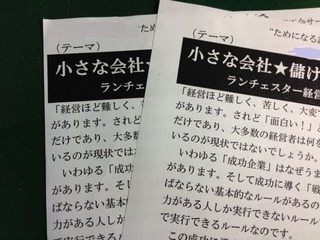 "ため
(テーマ)
小さな会社★
ランチェスタ
「経営ほど難しく、
があります。され
だけであり、大多数
いるのが現状では
いわゆる「成功
があります。そし
ばならない基本的
力がある人しか実
で実行できるルー
"ためになる
(テーマ)
小さな会社★儲け
ランチェスター経営
「経営ほど難しく、苦しく、大変
があります。されど「面白い！」
だけであり、大多数の経営者は何を
いるのが現状ではないでしょうか。
いわゆる「成功企業」はなぜうま
があります。そして成功に導く「戦
ばならない基本的なルールがあるの
力がある人しか実行できないルール
で実行できるルールなのです。
この成功に導